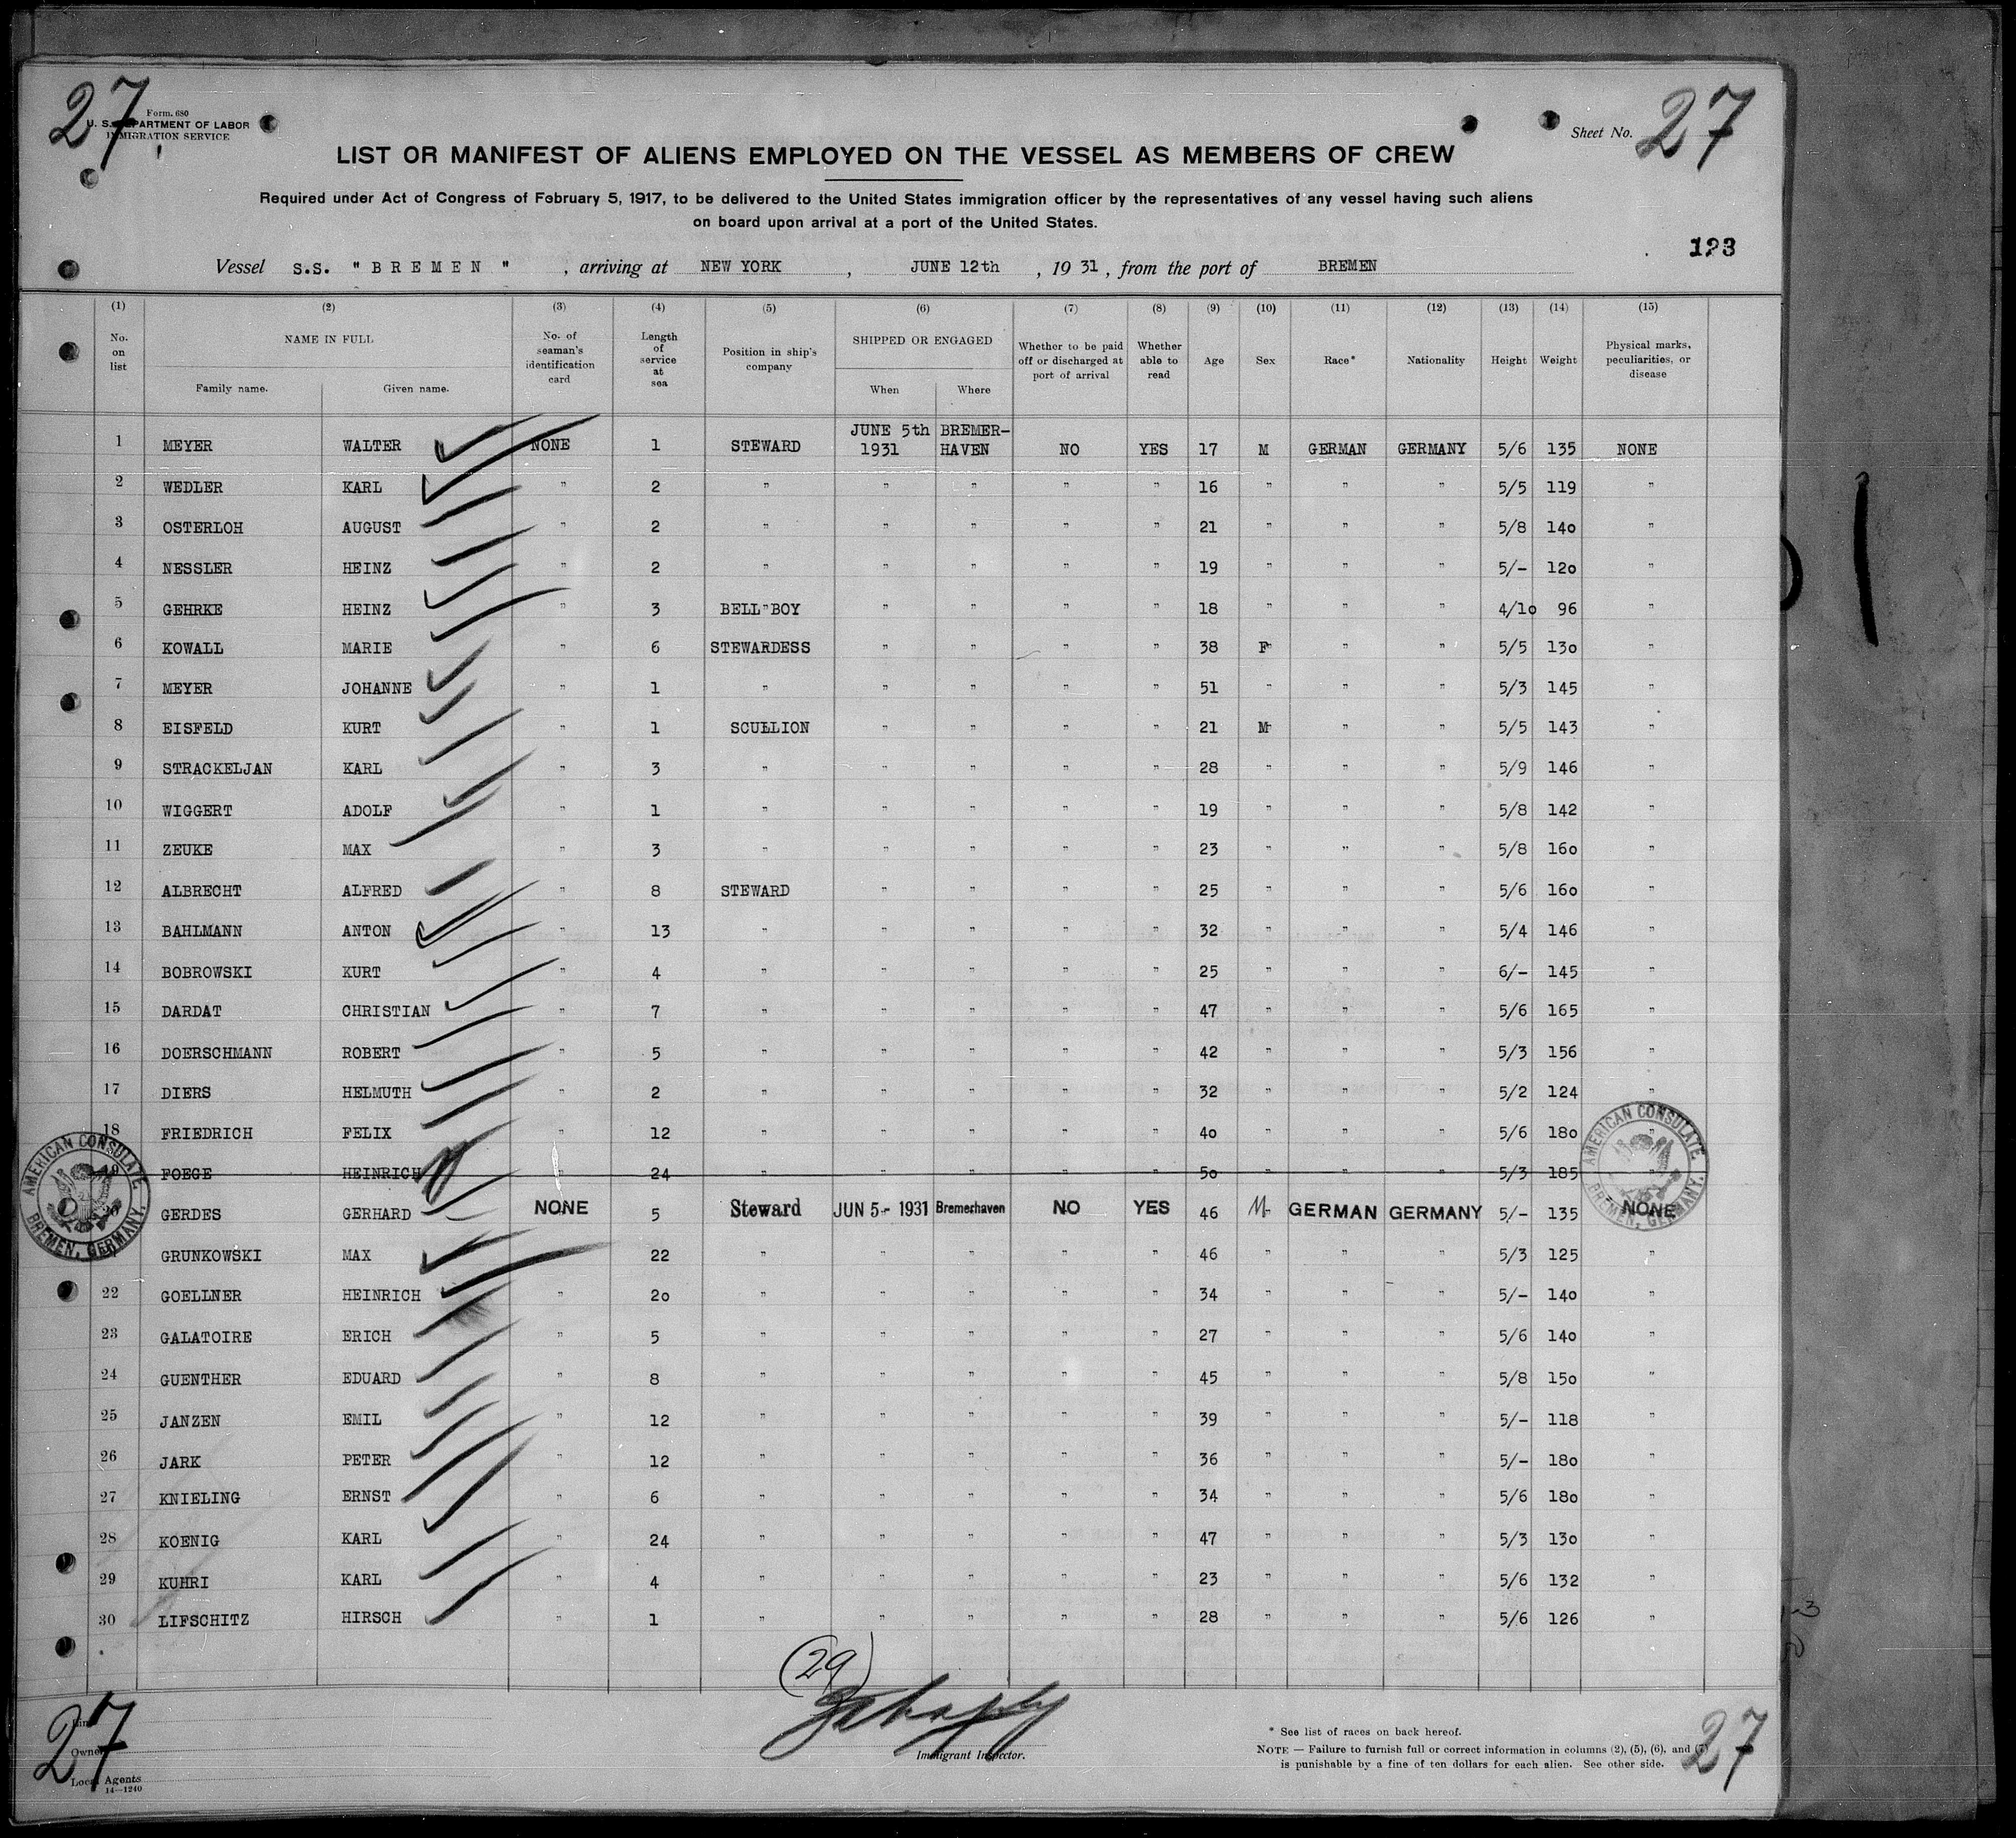 27 27
Form. 680
U. S. DEPARTMENT OF LABOR
IMMIGRATION SERVICE
Sheet No.
LIST OR MANIFEST OF ALIENS EMPLOYED ON THE VESSEL AS MEMBERS OF CREW
Required under Act of Congress of February 5, 1917, to be delivered to the United States immigration officer by the representatives of any vessel having such aliens
on board upon arrival at a port of the United States.
123
Vessel S.S. " B R E M E N " , arriving at NEW YORK , JUNE 12th , 19 31 , from the port of BREMEN
(1) (2) (3) (4) (5) (6) (7) (8) (9) (10) (11) (12) (13) (14) (15)
No. on list NAME IN FULL Family name. Given name. No. of seaman's identification card Length of service at sea Position in ship's company SHIPPED OR ENGAGED When Where Whether to be paid off or discharged at port of arrival Whether able to read Age Sex Race* Nationality Height Weight Physical marks, peculiarities, or disease
1 MEYER WALTER NONE 1 STEWARD JUNE 5th 1931 BREMER-HAVEN NO YES 17 M GERMAN GERMANY 5/6 135 NONE
2 WEDLER KARL " 2 " " " " " 16 " " " 5/5 119 "
3 OSTERLOH AUGUST " 2 " " " " " 21 " " " 5/8 140 "
4 NESSLER HEINZ " 2 " " " " " 19 " " " 5/- 120 "
5 GEHRKE HEINZ " 3 BELL"BOY " " " " 18 " " " 4/10 96 "
6 KOWALL MARIE " 6 STEWARDESS " " " " 38 F " " 5/5 130 "
7 MEYER JOHANNE " 1 " " " " " 51 " " " 5/3 145 "
8 EISFELD KURT " 1 SCULLION " " " " 21 M " " 5/5 143 "
9 STRACKELJAN KARL " 3 " " " " " 28 " " " 5/9 146 "
10 WIGGERT ADOLF " 1 " " " " " 19 " " " 5/8 142 "
11 ZEUKE MAX " 3 " " " " " 23 " " " 5/8 160 "
12 ALBRECHT ALFRED " 8 STEWARD " " " " 25 " " " 5/6 160 "
13 BAHLMANN ANTON " 13 " " " " " 32 " " " 5/4 146 "
14 BOBROWSKI KURT " 4 " " " " " 25 " " " 6/- 145 "
15 DARDAT CHRISTIAN " 7 " " " " " 47 " " " 5/6 165 "
16 DOERSCHMANN ROBERT " 5 " " " " " 42 " " " 5/3 156 "
17 DIERS HELMUTH " 2 " " " " " 32 " " " 5/2 124 "
18 FRIEDRICH FELIX " 12 " " " " " 40 " " " 5/6 180 "
19 FOEGE HEINRICH " 24 " " " " " 50 " " " 5/3 185 "
20 GERDES GERHARD NONE 5 Steward JUN 5- 1931 Bremerhaven NO YES 46 M GERMAN GERMANY 5/- 135 NONE
GRUNKOWSKI MAX " 22 " " " " " 46 " " " 5/3 125 "
22 GOELLNER HEINRICH " 20 " " " " " 34 " " " 5/- 140 "
23 GALATOIRE ERICH " 5 " " " " " 27 " " " 5/6 140 "
24 GUENTHER EDUARD " 8 " " " " " 45 " " " 5/8 150 "
25 JANZEN EMIL " 12 " " " " " 39 " " " 5/- 118 "
26 JARK PETER " 12 " " " " " 36 " " " 5/- 180 "
27 KNIELING ERNST " 6 " " " " " 34 " " " 5/6 180 "
28 KOENIG KARL " 24 " " " " " 47 " " " 5/3 130 "
29 KUHRI KARL " 4 " " " " " 23 " " " 5/6 132 "
30 LIFSCHITZ HIRSCH " 1 " " " " " 28 " " " 5/6 126 "
AMERICAN CONSULATE. BREMEN, GERMANY.
AMERICAN CONSULATE. BREMEN, GERMANY.
(29)
Immigrant Inspector.
27 27
Owner
Local Agents
14—1240
* See list of races on back hereof.
NOTE — Failure to furnish full or correct information in columns (2), (5), (6), and (7)
is punishable by a fine of ten dollars for each alien. See other side.